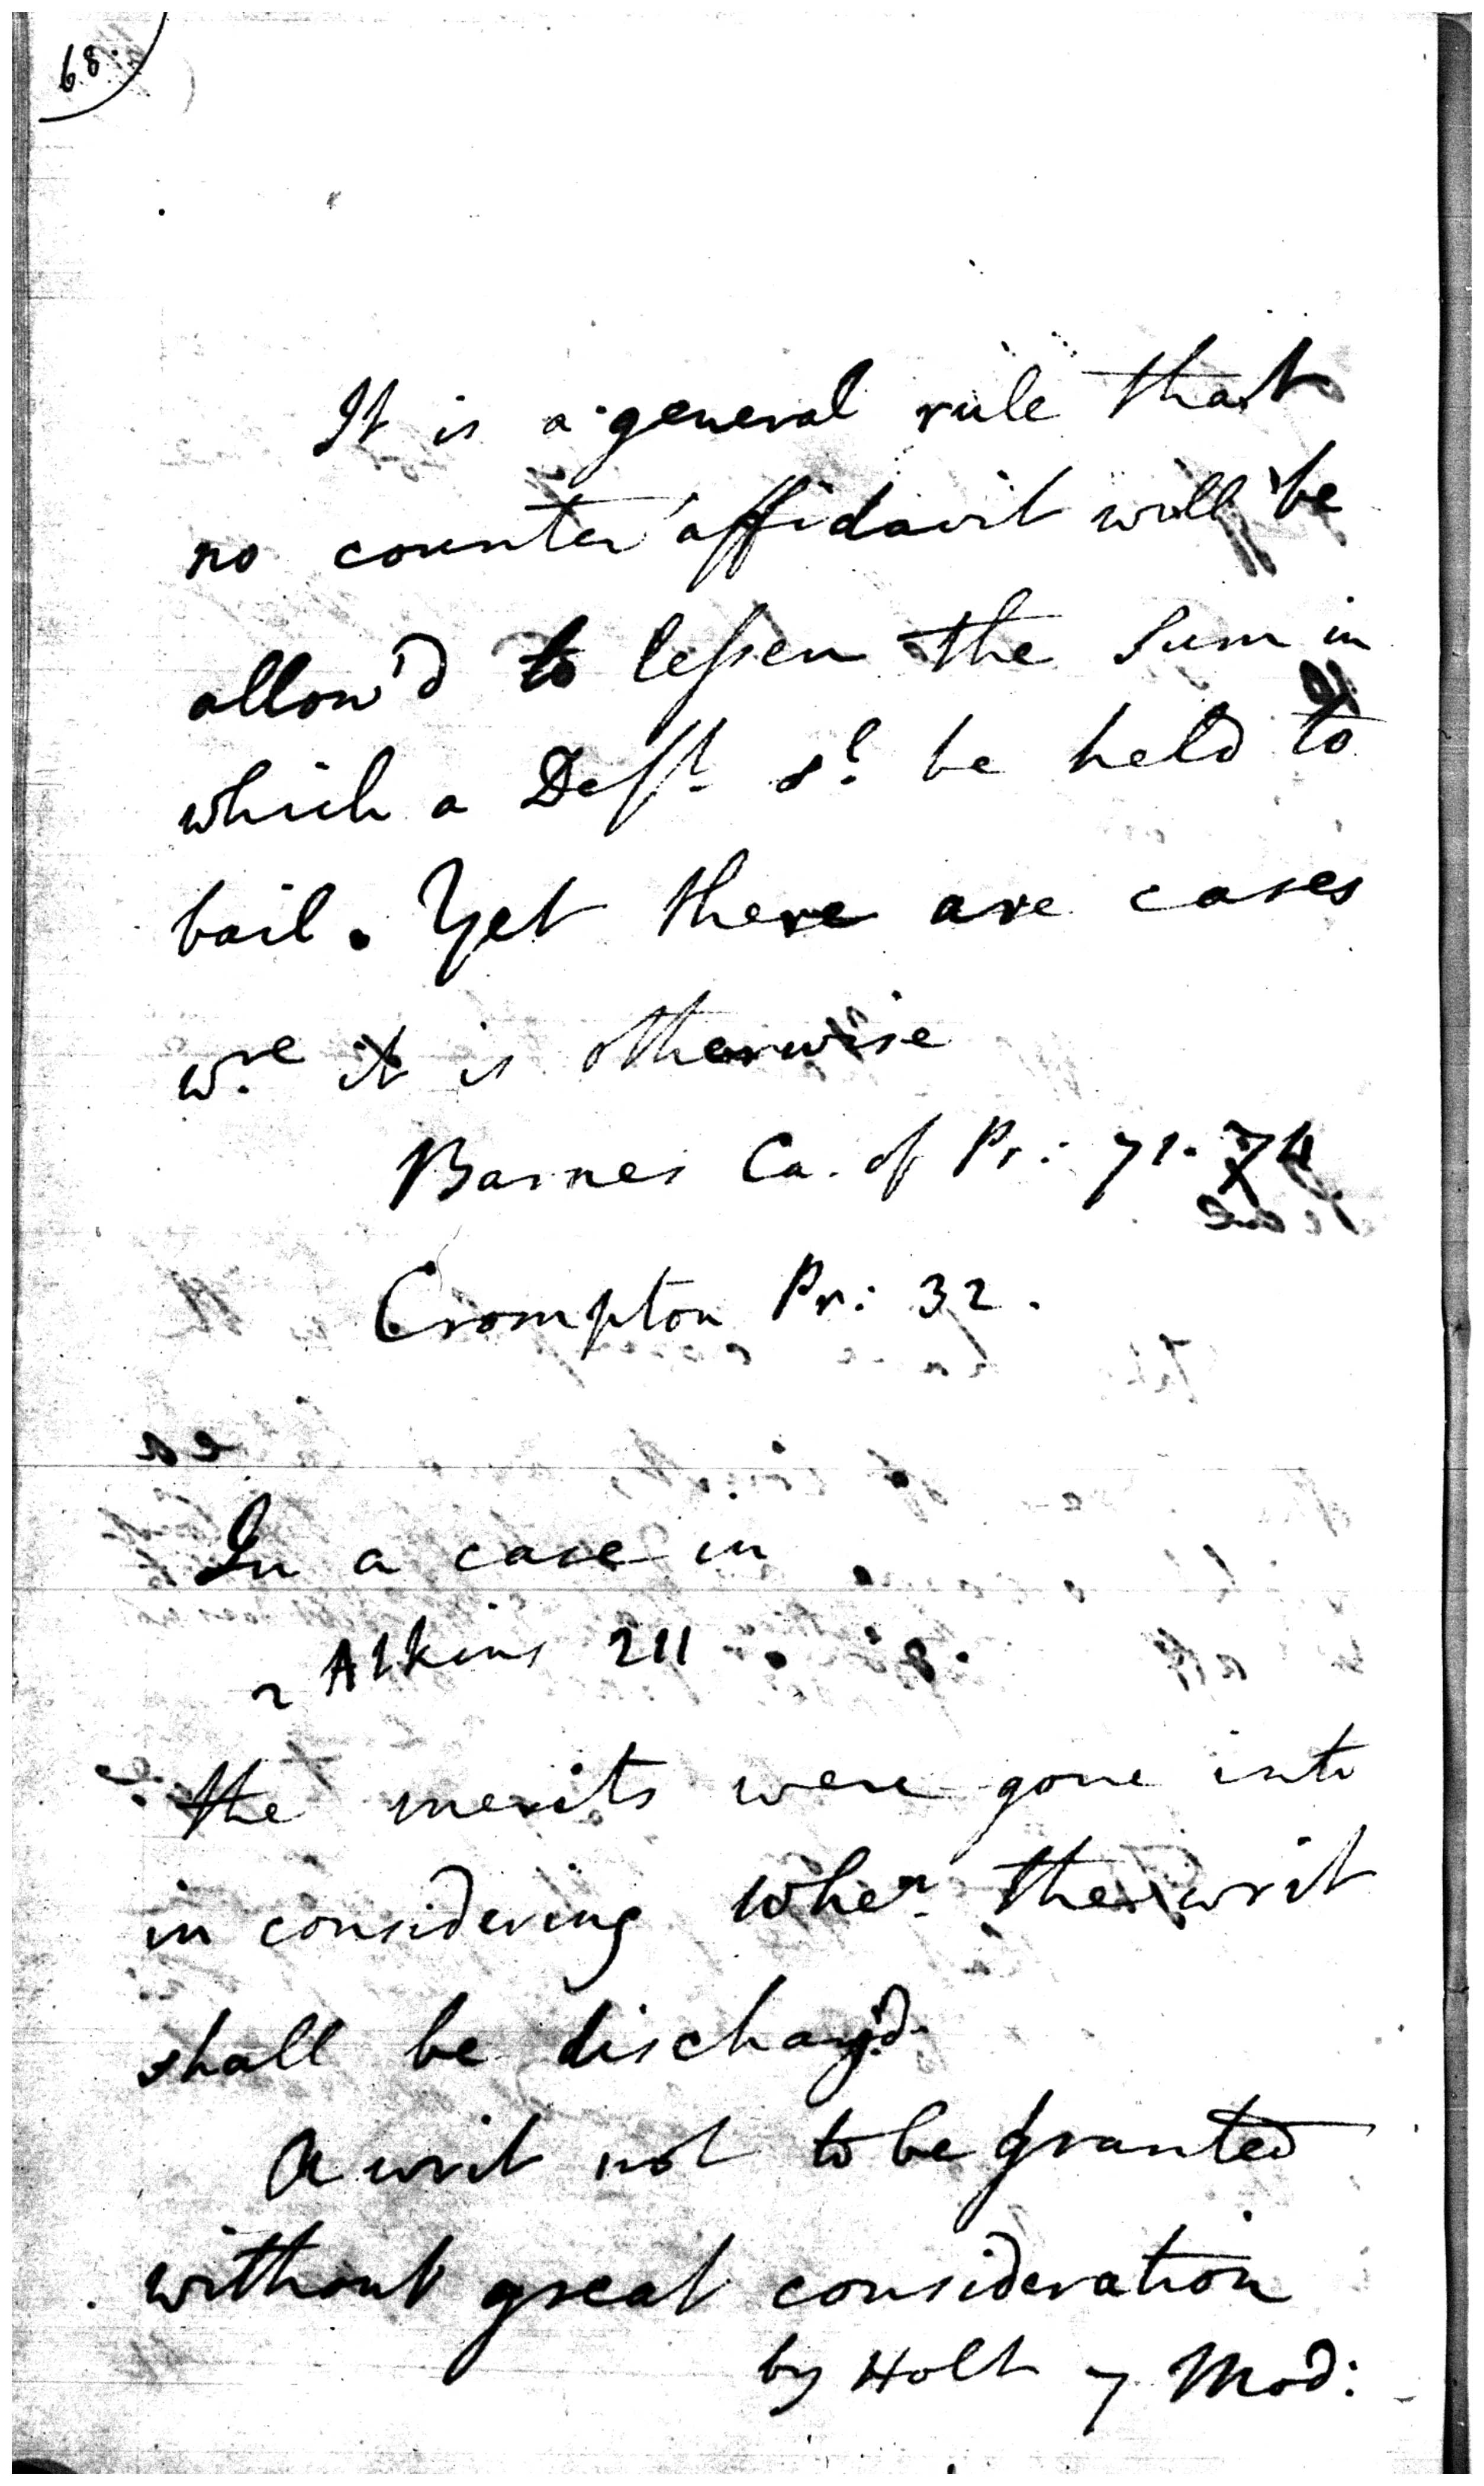 68.
It is a general rule that
no counter affidavit will be
allow'd to lessen the sum in
which a Deft. sd. be held to
bail. Yet there are cases
wre. it is otherwise
Barnes Ca. of Pr: 71. 74
Crompton Pr: 32.
In a case in
2 Atkins 211
the merits were gone into
in considering wher. the writ
shall be discharg'd.
A writ not to be granted
without great consideration
by Holt 7 Mod: